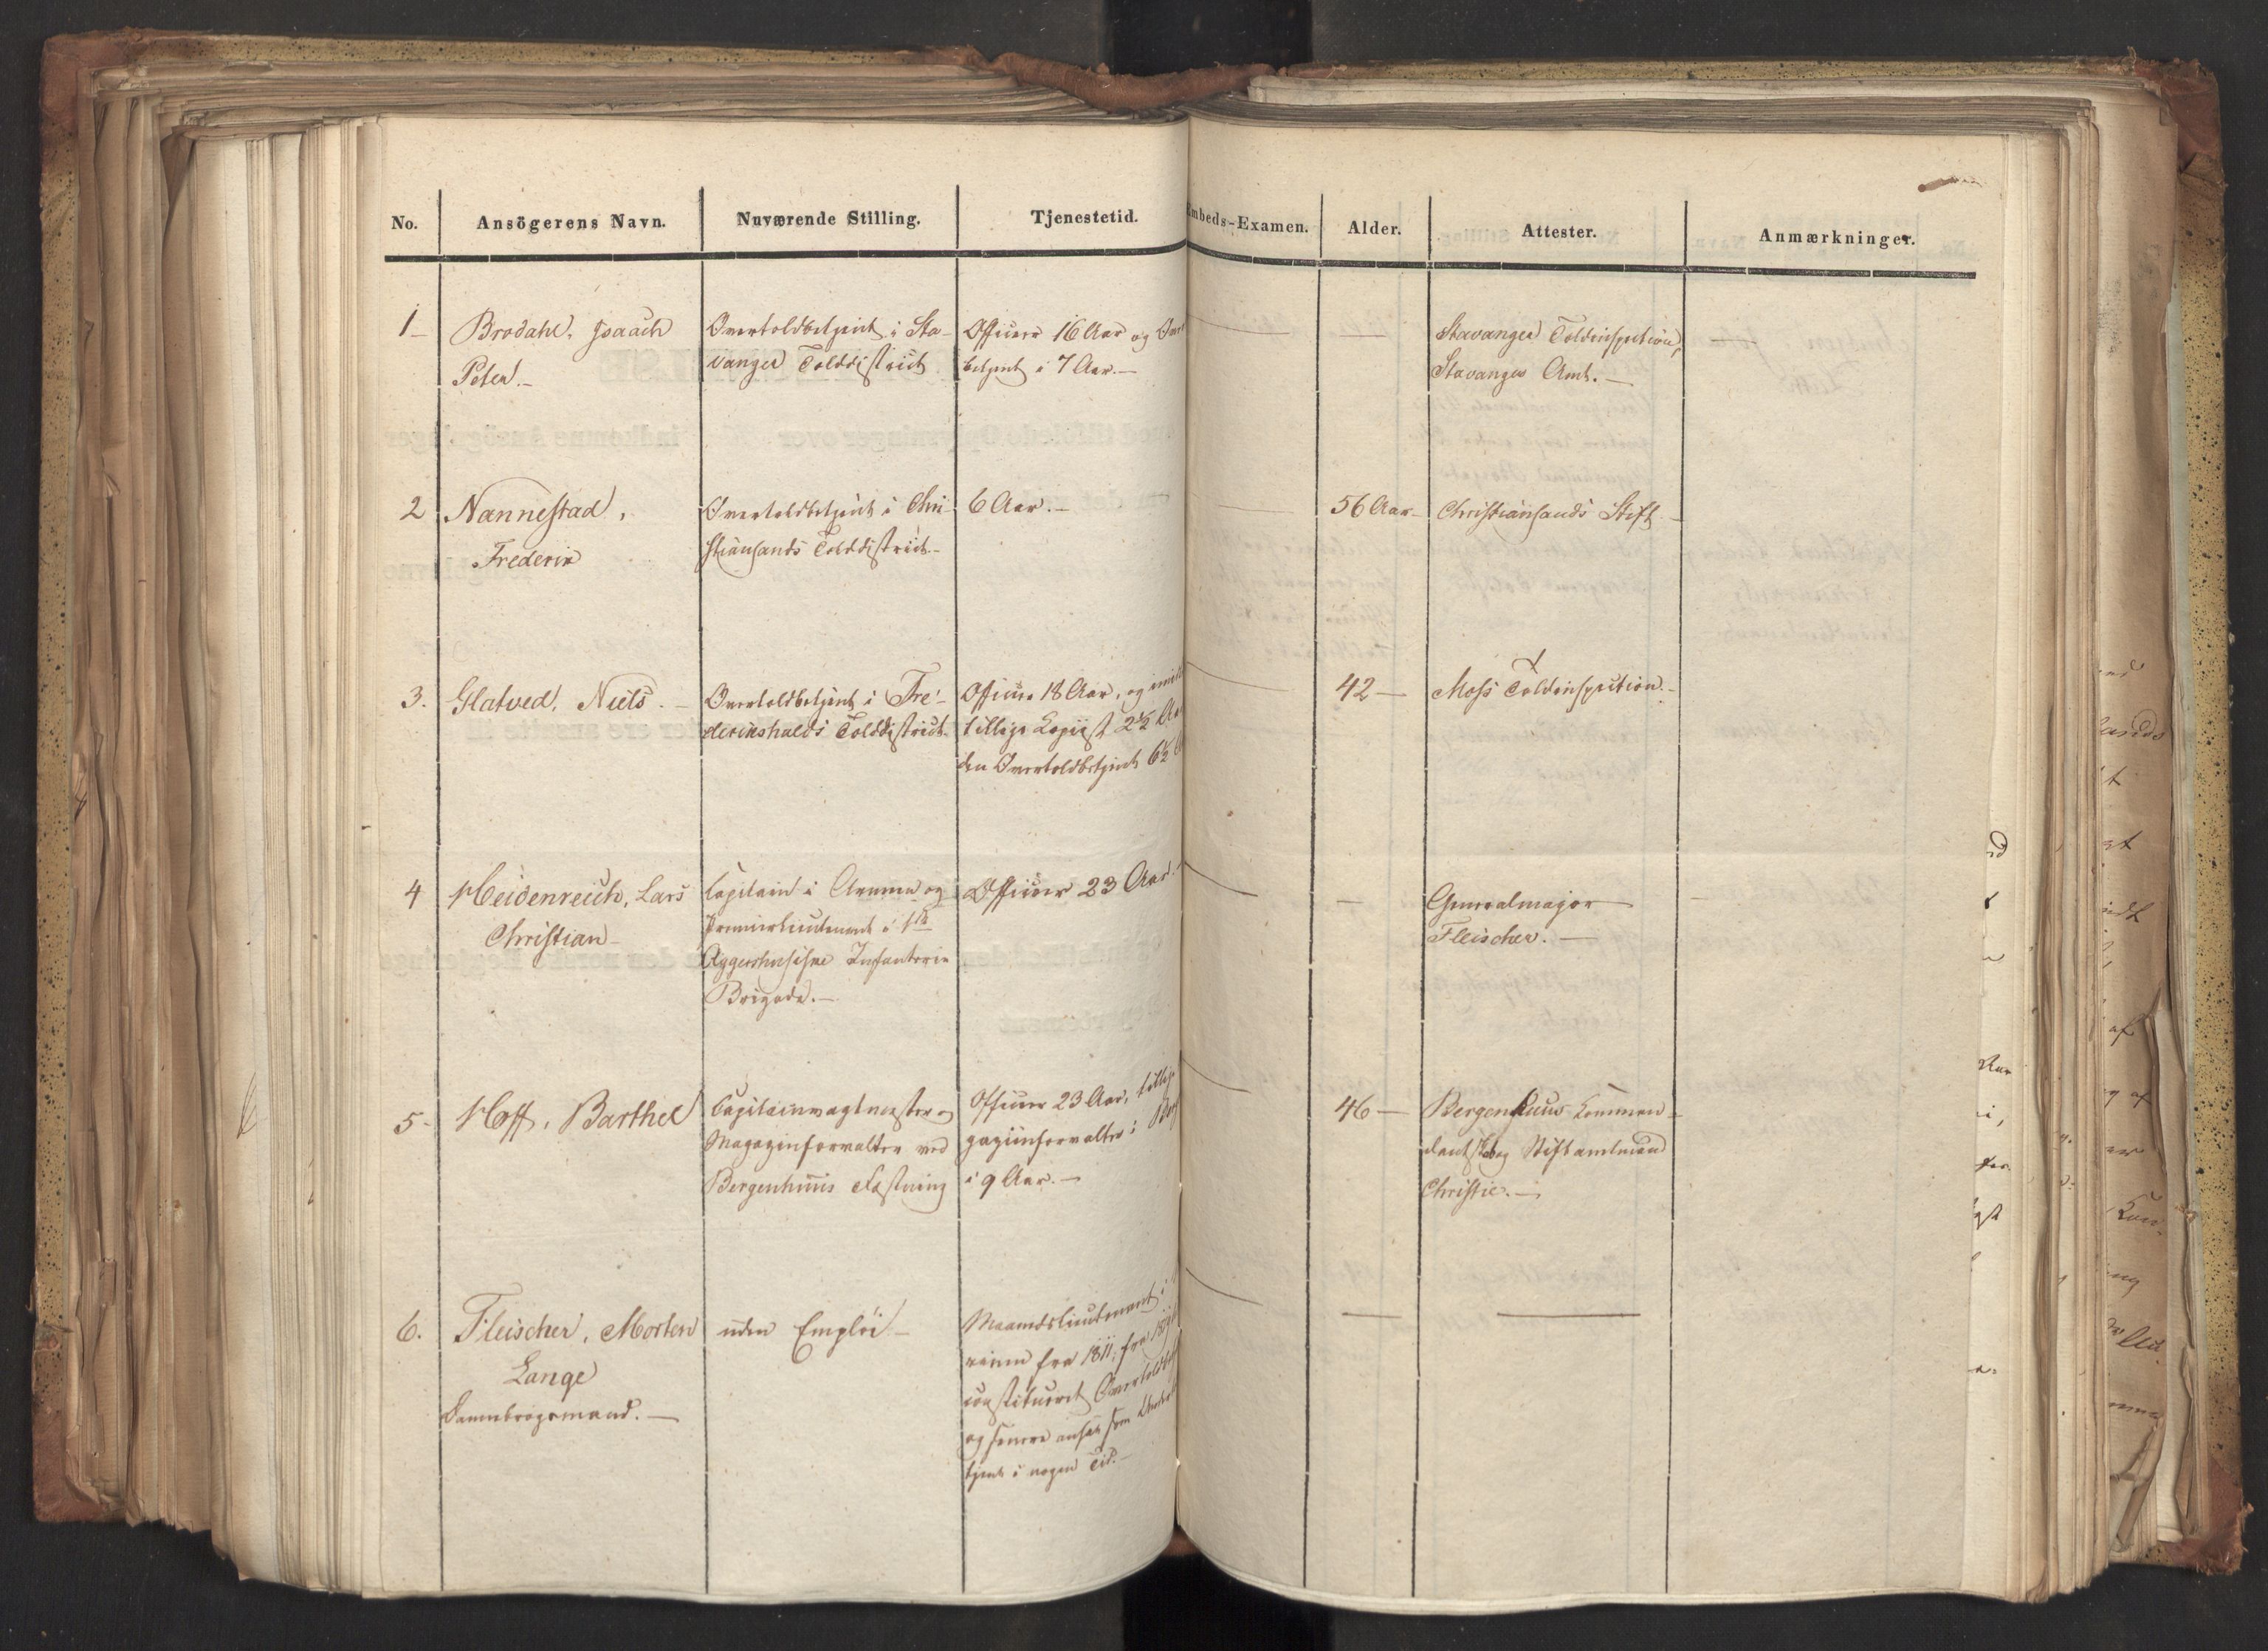 No. Ansögerens Navn. Nuværende Stilling. Tjenestetid. Embeds-Examen. Alder. Attester. Anmærkninger.
1 Brodahl, Isaach
Peter.
Overtoldbetjent i Sta-
vanger Tolddistrict
Officeer 16 Aar og Over
betjent i 7 Aar.
Stavanger Toldinspection,
Stavanger Amt.
2 Nannestad,
Frederik
Overtoldbetjent i Chri-
stiansands Tolddistrict
6 Aar.
56 Aar
Christiansands Stift
3. Glatved, Niels.
Overtoldbetjent i Fre-
derikshalds Tolddistrict
Officeer 18 Aar, og
tillige Kopiist 2½ Aar
den Overtoldbetjent 6½
42
Moss Toldinspection.
4 Heidenreich, Lars
Christian
Capitain i Armeen og
Premierlieutenant i 1ste
Aggershusiske Infanterie
Brigade.
Officeer 23 Aar.
Generalmajor
Fleischer.
5 Hoff, Barthel
Capitainvagtmester og
Magazinforvalter ved
Bergenhuus Fæstning
Officeer 23 Aar, tillige
gaziinforvalter i
i 9 Aar.
46
Bergenhuus Commen-
dantskab og Stiftamtmand
Christie.
6. Fleischer, Morten
Lange
Dannebrogsmand.
uden Emploi
Maanedslieutenant i
fra 1811, fra
constitueret Overtoldbetj
og senere ansat som
tjent i nogen Tid.